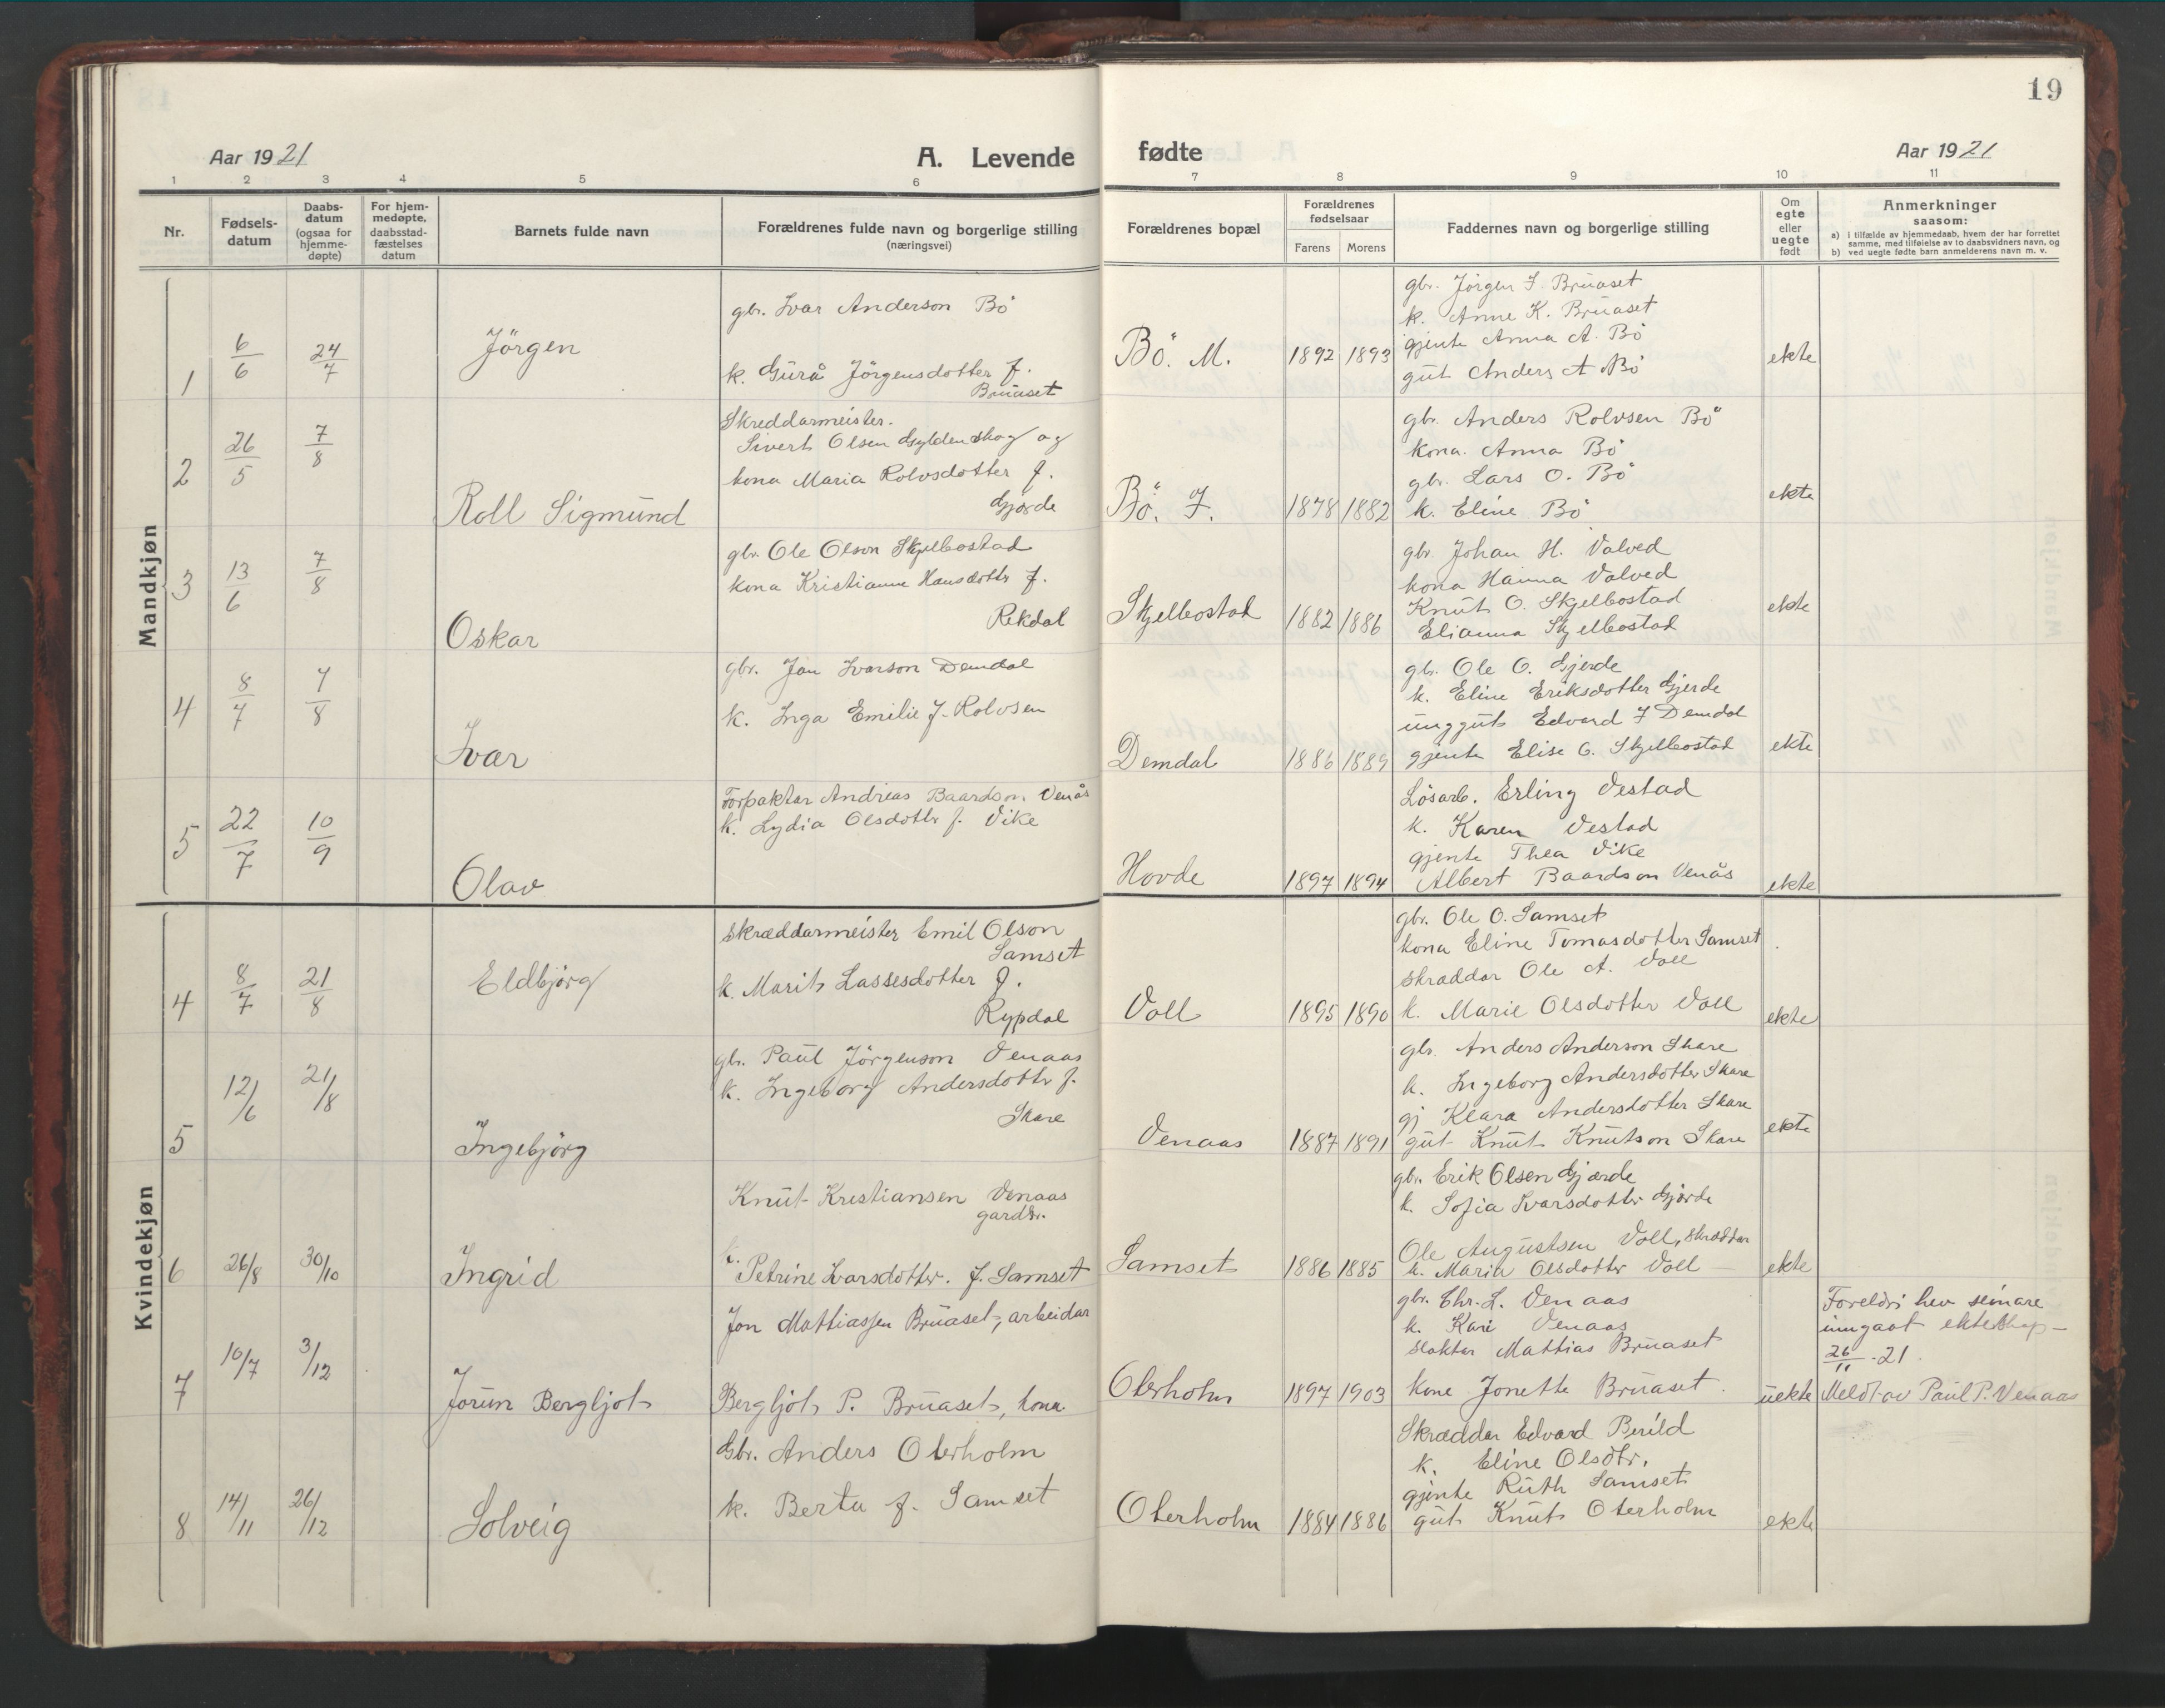 19
Aar 1921
A. Levende fødte
Aar 1921
1 2 3 4 5 6 7 8 9 10 11
Nr.
Fødsels-
datum
Daabs-
datum
(ogsaa for
hjemme-
døpte)
For hjem-
medøpte,
daabsstad-
fæstelses
datum
Barnets fulde navn
Forældrenes fulde navn og borgerlige stilling
(næringsvei)
Forældrenes bopæl
Forældrenes
fødselsaar
Farens Morens
Faddernes navn og borgerlige stilling
Om
egte
eller
uegte
født
Anmerkninger
saasom:
a) i tilfælde av hjemmedaab, hvem der har forrettet
samme, med tilføielse av to daabsvidners navn, og
b) ved uegte fødte barn anmelderens navn m. v.
Mandkjøn
1 6/6 24/7 Jörgen
gbr. Ivar Anderson Bö
k. Gurå Jörgensdotter f.
Bruaset
Bö. M. 1892 1893
gbr. Jörgen I. Bruaset
k. Anne K. Bruaset
gjente Anna A. Bö
gut Anders A Bö
ekte
2 26/5 7/8 Roll Sigmund
Skreddarmeister.
Sivert Olsen Gyldenskog og
kona Maria Rolvsdotter f.
Gjørde
Bö. I. 1878 1882
gbr. Anders Rolvsen Bö
kona. Anna Bö
gbr. Lars O. Bö
k. Eline Bö
ekte
3 13/6 7/8 Oskar
gbr. Ole Olson Skjelbostad
kona Kristianne Hansdottr f.
Rekdal
Skjelbostad 1882 1886
gbr. Johan H. Valved
kona Hanna Valved
Knut O. Skjelbostad
Elianna Skjelbostad
ekte
4 8/7 7/8 Ivar
gbr. Jon Ivarson Demdal
k. Inga Emilie f. Rolvsen
Demdal 1886 1889
gbr. Ole O. Gjerde
k. Eline Eriksdotter Gjerde
unggut Edvard I Demdal
gjente Elise O. Skjelbostad
ekte
5 22/7 10/9 Olav
Forpaktar Andreas Baardson Venås
k. Lydia Olsdottr f. Vike
Hovde 1897 1894
Lösarb. Erling Vestad
k. Karen Vestad
gjente Thea Vike
Albert Baardson Venås
ekte
Kvindekjøn
4 8/7 21/8 Eldbjörg
skræddarmeister Emil Olson
Samset
k. Marit Lassesdotter f.
Rypdal
Voll 1895 1890
gbr. Ole O. Samset
kona Eline Tomasdotter Samset
skræddar Ole A. Voll
k. Marie Olsdotter Voll
ekte
5 12/6 21/8 Ingebjörg
gbr. Paul Jörgenson Venaas
k. Ingeborg Andersdottr f.
Skare
Venaas 1887 1891
gbr. Anders Anderson Skare
k. Ingeborg Andersdotter Skare
gj Klara Andersdotter Skare
gut Knut Knutson Skare
ekte
6 26/8 30/10 Ingrid
Knut Kristiansen Venaas
gardbr.
k. Petrine Ivarsdotter. f. Samset
Samset 1886 1885
gbr. Erik Olsen Gjærde
k. Sofia Ivarsdottr Gjørde
Ole Augustsen Voll, skræddar
k. Maria Olsdottr Voll
ekte
7 10/7 3/12 Jorun Bergljot
Jon Mattiassen Bruaset, arbeidar
Bergljot P. Bruaset, kona
Oterholm 1897 1903
gbr. Chr. L. Venaas
k. Kari Venaas
slaktar Mattias Bruaset
kone Jonette Bruaset.
uekte
Foreldri hev seinare
inngaat ekteskap –
26/11 -21.
Meldt av Paul P. Venaas
8 14/11 26/12 Solveig
Gbr. Anders Oterholm
k. Berta f. Samset
Oterholm 1884 1886
Skræddar Edvard Berild
k. Eline Olsdtr.
gjente Ruth Samset
gut Knut Oterholm
ekte